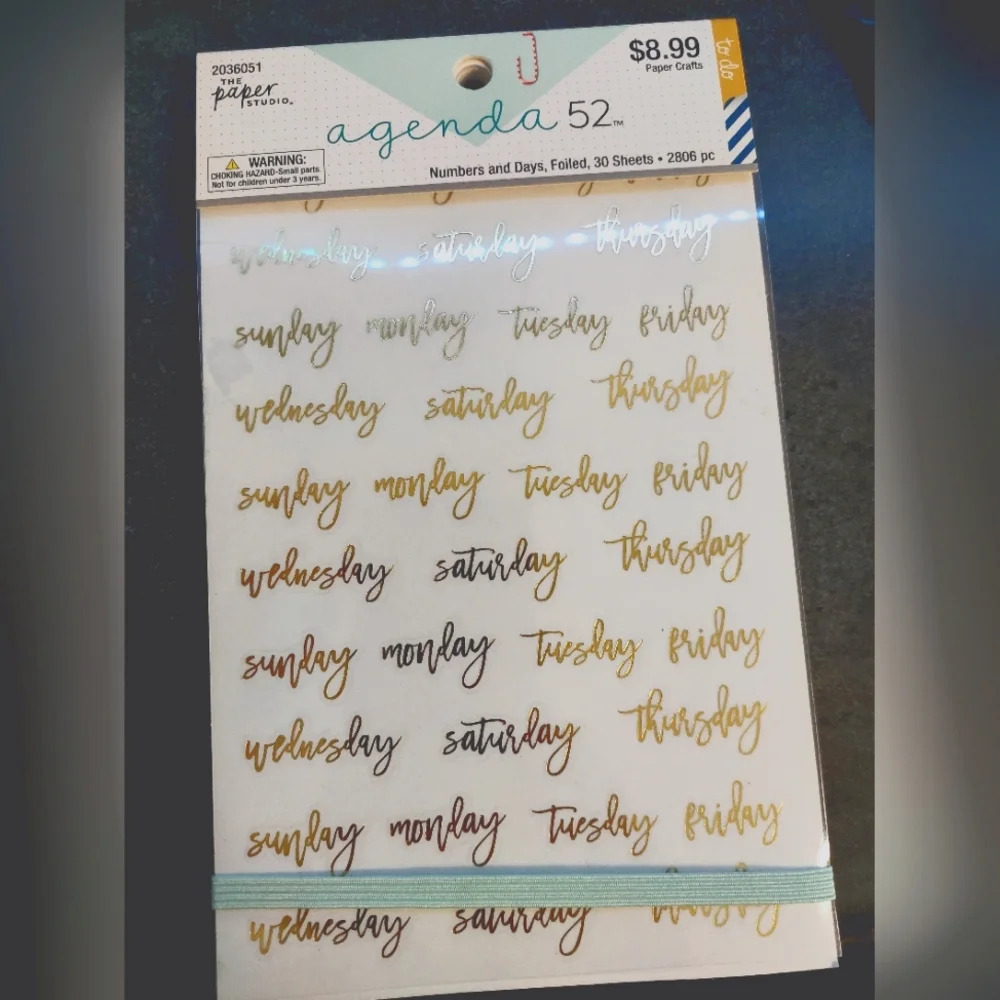 2036051
THE
paper
STUDIO
$8.99
Paper Crafts
to do
agenda 52™
WARNING:
CHOKING HAZARD-Small parts.
Not for children under 3 years.
Numbers and Days, Foiled, 30 Sheets • 2806 pc
wednesday saturday thursday
sunday monday tuesday friday
wednesday saturday thursday
sunday monday tuesday friday
wednesday saturday thursday
sunday monday tuesday friday
wednesday saturday thursday
sunday monday tuesday friday
wednesday saturday thursday